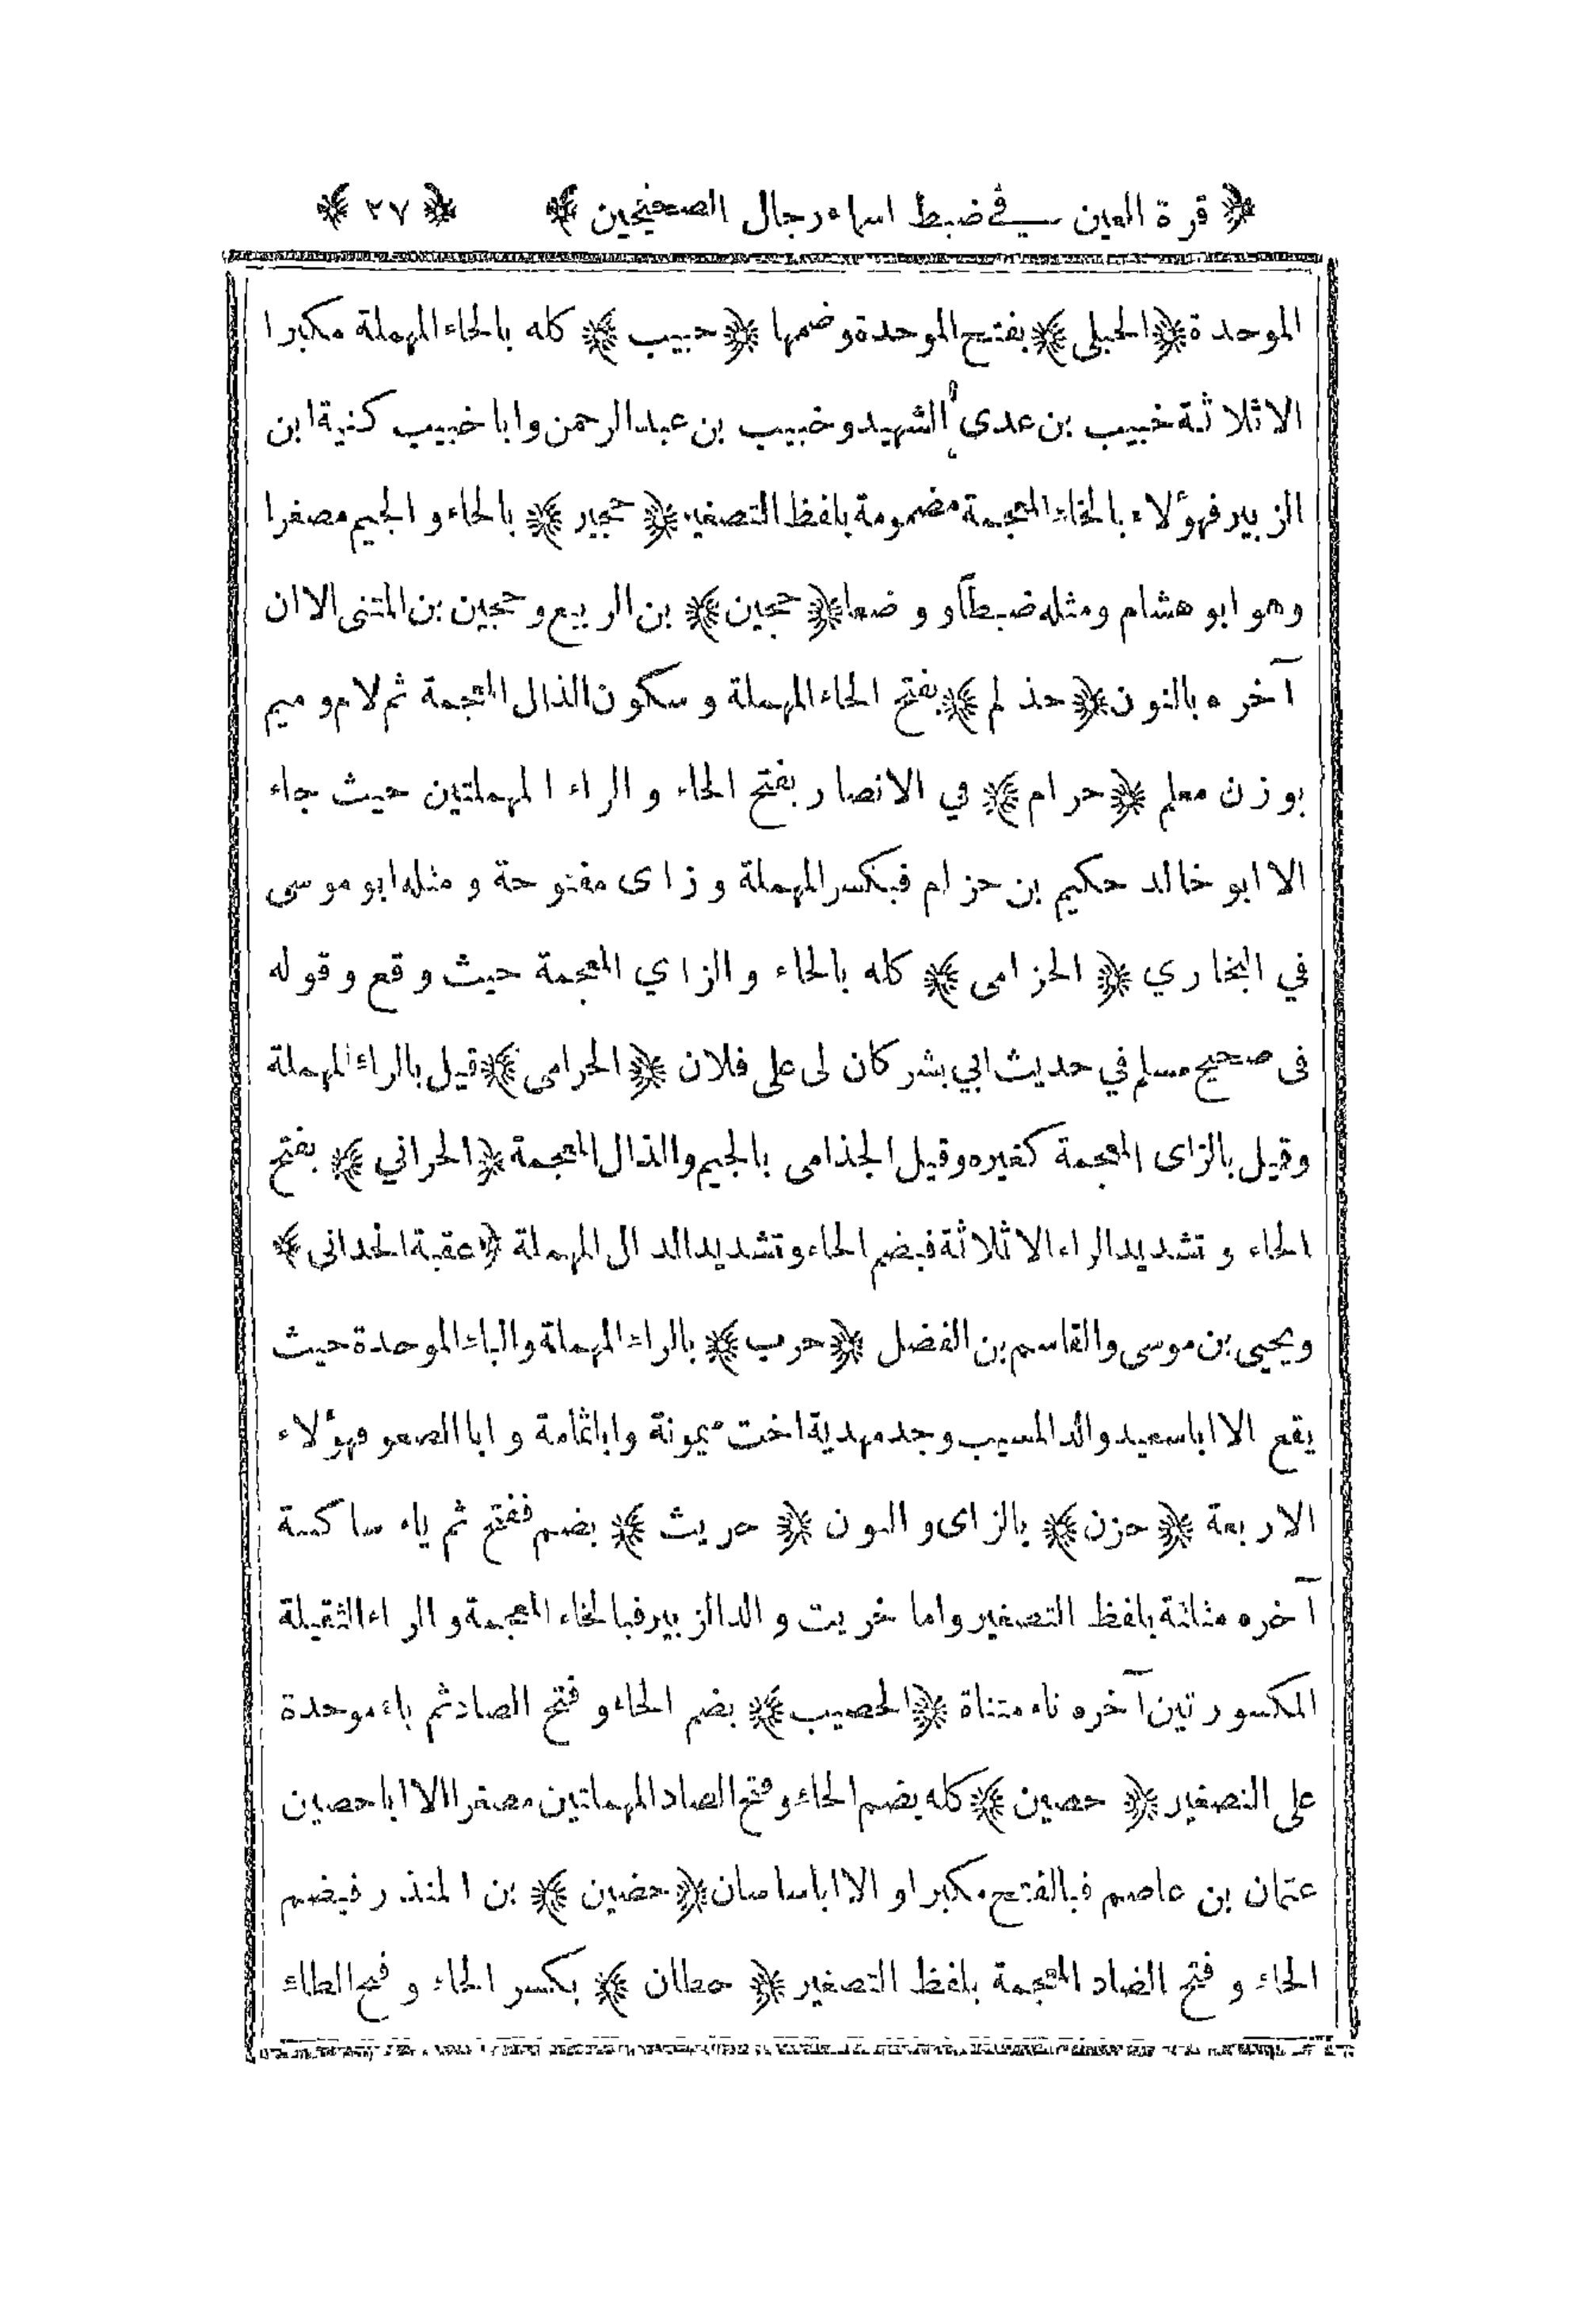 ﴿ قرة العين في ضبط اسماء رجال الصحيحين ﴾ ﴿ ٢٧ ﴾
الموحدة ﴿ الحبلى ﴾ بفتح الموحدة وضمها ﴿ حبيب ﴾ كله بالحاء المهملة مكبرا
الا ثلاثة خبيب بن عدى الشهيد وخبيب بن عبد الرحمن وابا خبيب كنية ابن
الزبير فهؤلاء بالخاء المعجمة مضمومة بلفظ التصغير ﴿ حجير ﴾ بالحاء والجيم مصغرا
وهو ابو هشام ومثله ضبطاً ووضعا ﴿ حجين ﴾ بن الربيع وحجين بن المثنى الا ان
آخره بالنون ﴿ حذلم ﴾ بفتح الحاء المهملة وسكون الذال المعجمة ثم لام وميم
بوزن معلم ﴿ حرام ﴾ في الانصار بفتح الحاء والراء المهملتين حيث جاء
الا ابو خالد حكيم بن حزام فبكسر المهملة وزاى مفتوحة ومثله ابو موسى
في البخاري ﴿ الحزامى ﴾ كله بالحاء والزاي المعجمة حيث وقع وقوله
فى صحيح مسلم في حديث ابي بشر كان لى على فلان ﴿ الحرامى ﴾ قيل بالراء المهملة
وقيل بالزاى المعجمة كغيره وقيل الجذامى بالجيم والذال المعجمة ﴿ الحراني ﴾ بفتح
الحاء وتشديد الراء الا ثلاثة فبضم الحاء وتشديد الدال المهملة ﴿ عقبة الحدانى ﴾
ويحيى بن موسى والقاسم بن الفضل ﴿ حرب ﴾ بالراء المهملة والباء الموحدة حيث
يقع الا ابا سعيد والد المسيب وجد مهدية اخت ميمونة وابا ثمامة وابا الصعو فهؤلاء
الاربعة ﴿ حزن ﴾ بالزاى والنون ﴿ حريث ﴾ بضم ففتح ثم ياء ساكنة
آخره مثلثة بلفظ التصغير واما خريت والد الزبير فبالخاء المعجمة والراء الثقيلة
المكسورتين آخره تاء مثناة ﴿ الحصيب ﴾ بضم الحاء وفتح الصاد ثم باء موحدة
على التصغير ﴿ حصين ﴾ كله بضم الحاء وفتح الصاد المهملتين مصغرا الا ابا حصين
عثمان بن عاصم فبالفتح مكبرا والا ابا ساسان ﴿ حضين ﴾ بن المنذر فبضم
الحاء وفتح الضاد المعجمة بلفظ التصغير ﴿ حطان ﴾ بكسر الحاء وفتح الطاء